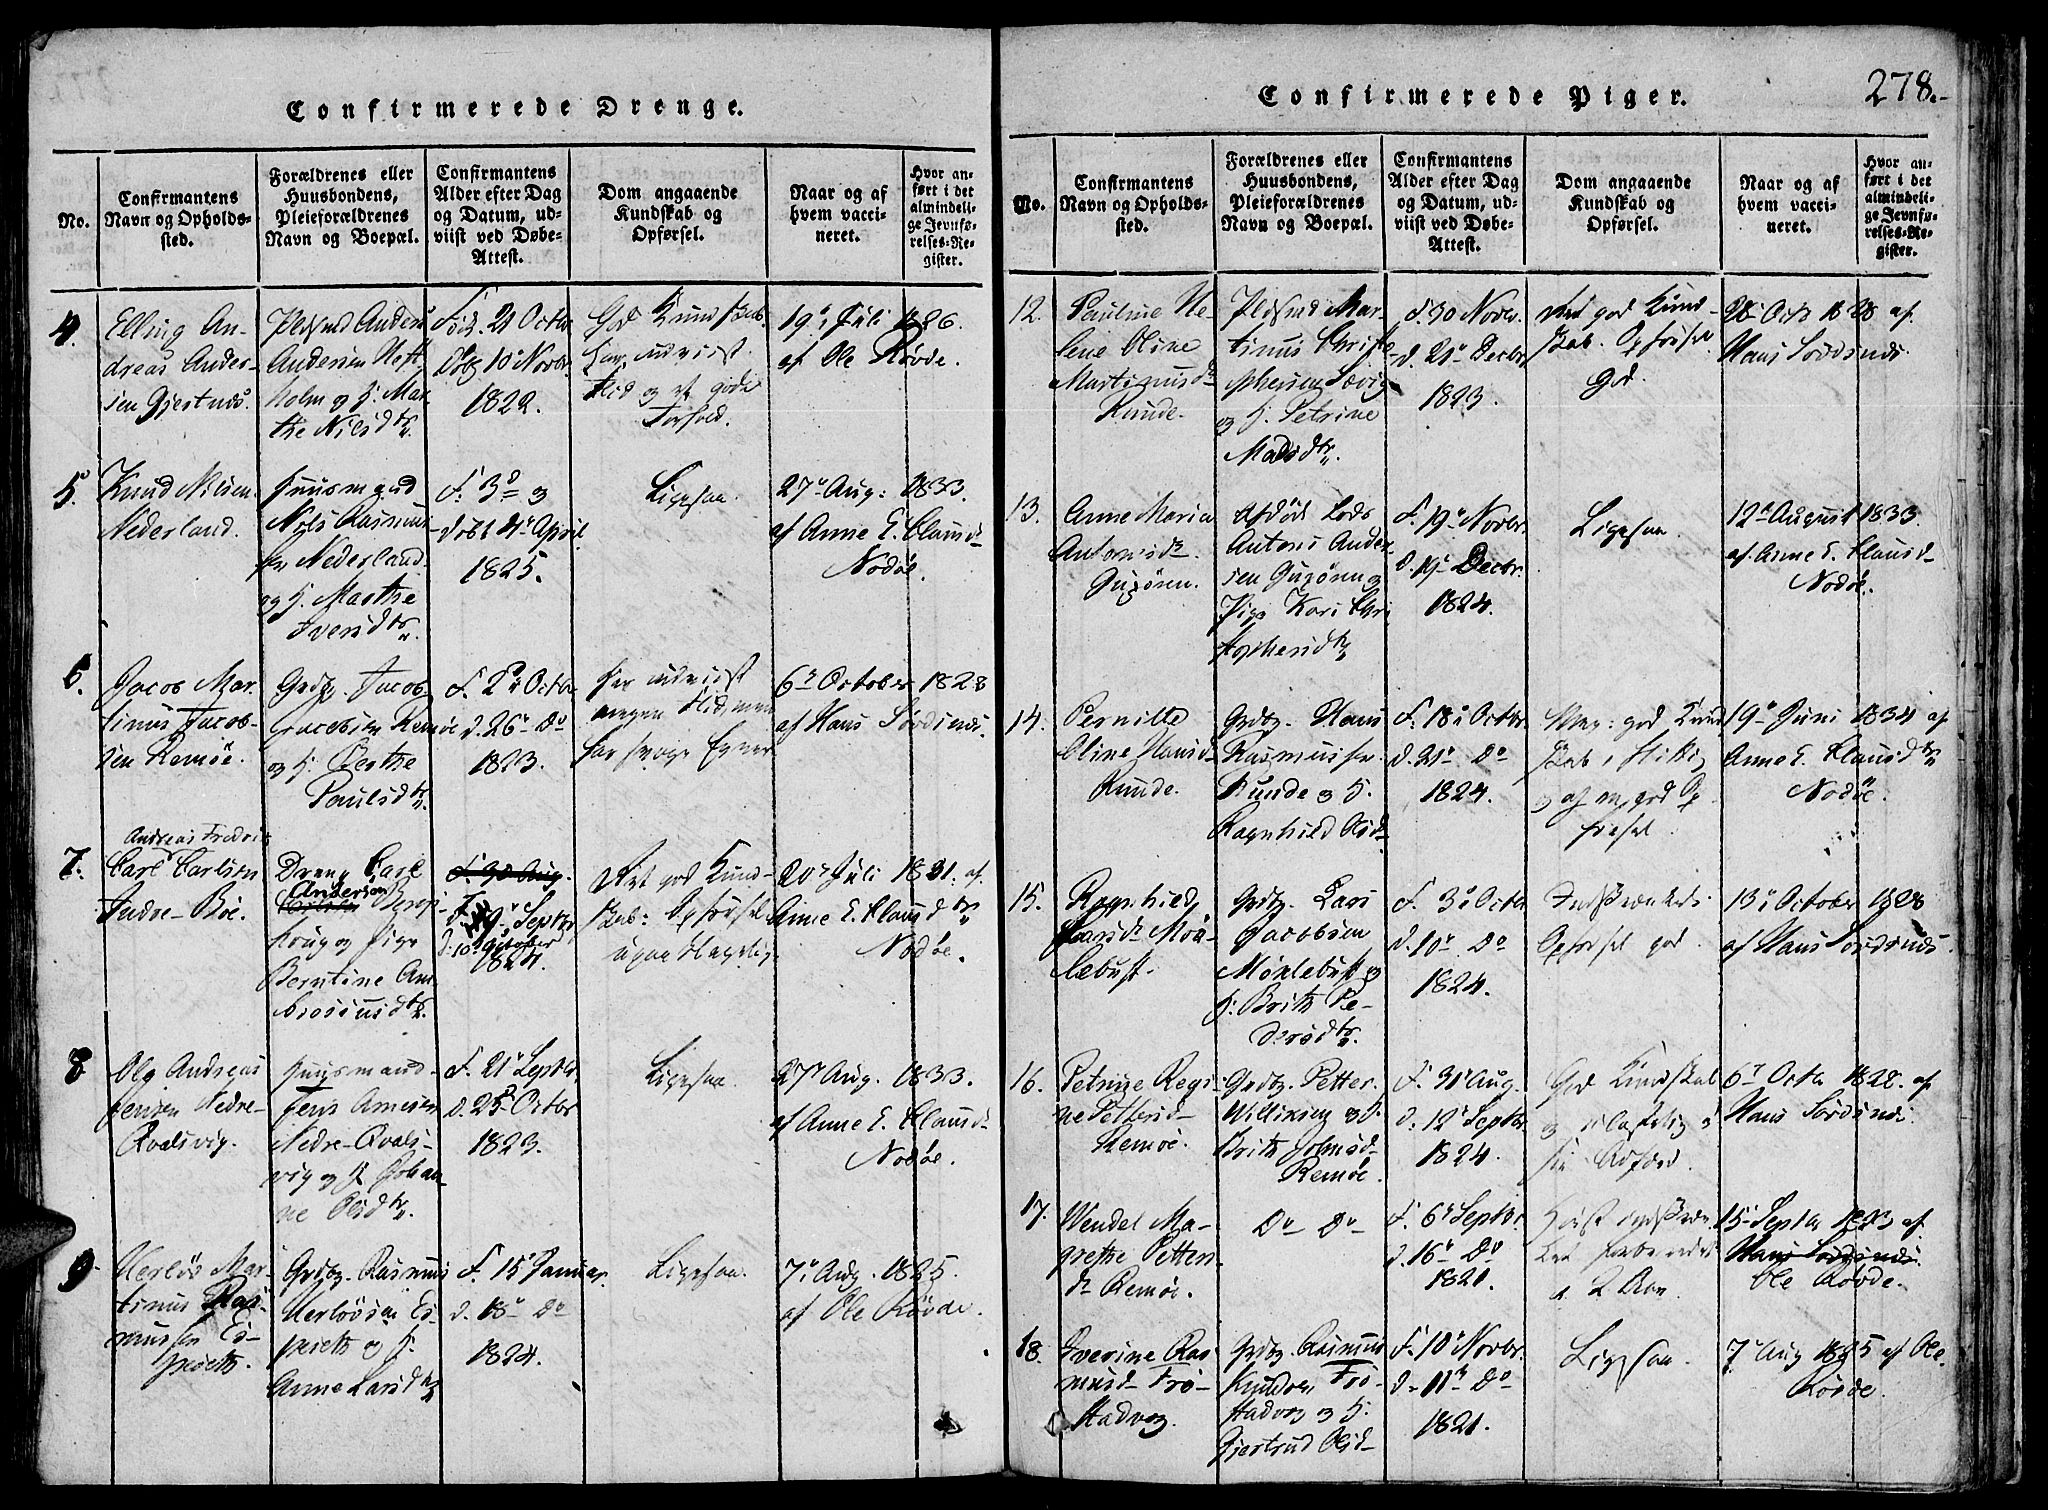 278.
Confirmerede Drenge.
No.
Confirmantens
Navn og Opholds-
sted.
Forældrenes eller
Huusbondens,
Pleieforældrenes
Navn og Boepæl.
Confirmantens
Alder efter Dag
og Datum, ud-
viist ved Døbe-
Attest.
Dom angaaende
Kundskab og
Opførsel.
Naar og af
hvem vacci-
neret.
Hvor an-
ført i det
almindeli-
ge Jevnfø-
relses-Re-
gister.
4.
Elling An-
dreas Ander-
sen Gjertnæs.
Anders
Andersen
holm og H. Mar-
the Nilsdtr.
Fød. 21 Octbr.
Døbt 10 Novbr.
1822.
God Kundskab.
har udviist
Flid og et godt
Forhold.
19de Juli 1826.
af Ole Røvde.
5.
Knud Nilsen
Nederland.
Huusmand
Nils Rasmus-
sen Nederland
og H. Marthe
Iversdtr.
F. 3d og
døbt 4de April
1825.
Ligesaa.
27de Aug: 1833.
af Anne E. Clausd.
Nodøe.
6.
Jacob Mar-
tinus Jacob-
sen Remøe.
Grdbg. Jacob
Jacobsen Remøe
og H. Berthe
Paulsdtr.
F. 2de Octbr.
d. 26de Do
1823.
har udviist
megen Flid, men
har svage Evner
6te October 1828
af Hans Sørdsnæs.
7.
Andreas Fredrik
Carl Carlsen
Indre-Bøe.
Dreng Carl
Anderson
Berntine Am-
brosiusdtr.
F. 30 Aug.
Septbr.
d. 10de October
1824.
god Kund-
skab: Opførsel
20de Juli 1831. af
Anne E. Clausdtr.
Nodøe.
8
Ole Andreas
Jensen Nedre-
Qvalsvig.
Huusmand
Jens
Nedre-Qvals-
vig og H. Johan-
ne Olsdtr.
F. 21de Septbr.
d. 25de Octbr.
1823.
Ligesaa.
27de Aug. 1833.
af Anne E. Clausd.
Nodøe.
9
Herløv Mar-
tinus Ras-
mussen Es-
peseth.
Grdbg. Rasmus
Herløvsen Es-
peseth og H.
Anne Larsdtr.
F. 15de Januar.
d. 18de Do
1824.
Ligesaa.
7de Aug. 1825.
af Ole Røvde.
Confirmerede Piger.
No.
Confirmantens
Navn og Opholds-
sted.
Forældrenes eller
Huusbondens,
Pleieforældrenes
Navn og Boepæl.
Confirmantens
Alder efter Dag
og Datum, ud-
viist ved Døbe-
Attest.
Dom angaaende
Kundskab og
Opførsel.
Naar og af
hvem vacci-
neret.
Hvor an-
ført i det
almindeli-
ge Jevnfø-
relses-Re-
gister.
12.
Pauline He-
lene Oline
Martinusdr.
Runde.
Mar-
tinus Christo-
phersen Sævig
og H. Petrine
Madsdtr.
F. 30 Novbr.
d. 21de Decbr.
1823.
god Kund-
skab. Opførsel
God.
28 Octr 1828 af
Hans Sørdsnæs
13.
Anne Maria
Antonsdr.
Gurzøen.
Afdøde Lods
Antons Ander-
sen Gurzøen og
Pige Kari Chri-
stophersdtr.
F. 19de Novbr.
d. 19de Decbr.
1824.
Ligesaa.
12te August 1833
af Anne E. Clausd.
Nodøe.
14.
Pernille
Oline Hansd.
Runde.
Grdbg. Hans
Rasmussen
Runde og H.
Ragnhild Olsd.
F. 18de Octbr.
d. 21de Do
1824.
god Kund-
skab,
og af en god Op-
førsel.
19de Juni 1834 af
Anne E. Clausdtr.
Nodøe.
15.
Ragnhild
Larsdr. Møk-
lebust.
Grdbg. Lars
Jacobsen
Møklebust og
H. Brith Pe-
dersdtr.
F. 3de Octbr.
d. 10de Do
1824.
Indskrænket.
Opførsel god.
13de October 1828
af Hans Sørdsnæs.
16.
Petrine Regi-
ne Pettersd.
Remøe.
Grdbg. Petter
Willumsen og H.
Brith Johnsd.
Remøe.
F. 31de Aug.
d. 12te Septbr.
1824.
God Kundskab
og
sin Adfærd.
6te Octbr. 1828. af
Hans Sørdsnæs.
17.
Wendel Ma-
grethe Petters-
dr. Remøe.
Do Do
F. 6te Septbr.
d. 16de Do
1821.
Høist indskræn-
ket forberedt
i 2 Aar.
15de Septbr. 1823 af
Hans Sørdsnæs.
Ole Røvde.
18.
Iverine Ras-
musd. Frø-
stadvog.
Grdbg. Rasmus
Knudsen Frø-
stadvog og H.
Gjertrud Olsd.
F. 10de Novbr.
d. 11te Do
1821.
Ligesaa.
7de Aug 1825 af Ole
Røvde.